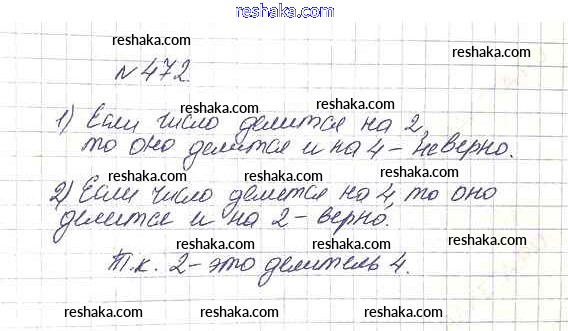 reshaka.com
reshaka.com reshaka.com
№472
reshaka.com reshaka.com reshaka.com
1) Если число делится на 2,
то оно делится и на 4 - неверно.
reshaka.com reshaka.com
reshaka.com reshaka.com reshaka.com
2) Если число делится на 4, то оно
делится и на 2 - верно.
reshaka.com reshaka.com
Т.к. 2 - это делитель 4.
reshaka.com reshaka.com reshaka.com